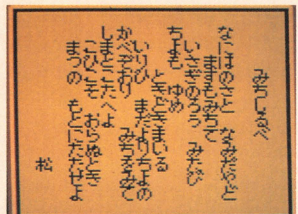 みちしるべ
なにはのさと なみだやど
ますもみちて
いさぎのろう みたび
ちよも ゆめ
ときどきまいる
いりひ まだよりちよの
かべぞおり みちをみて
しまとこたへよ
こひこそ おらぬとき
まつの もとにたたせよ
松